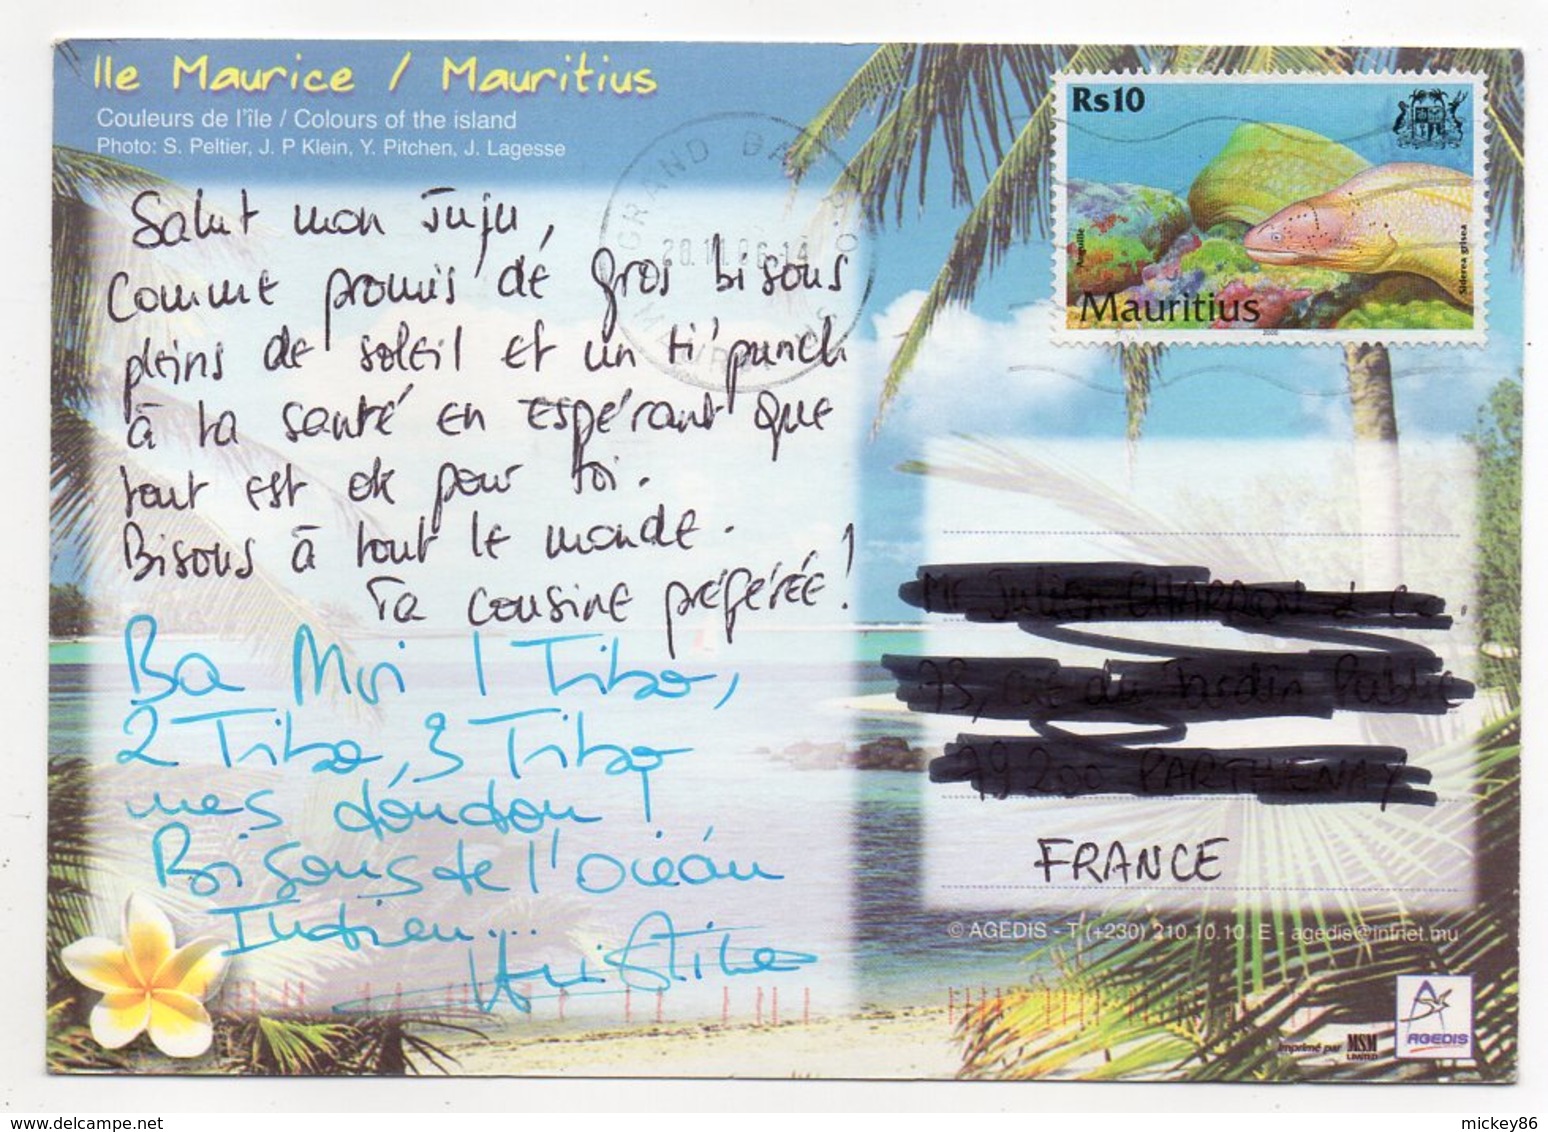 Ile Maurice / Mauritius
Couleurs de l'île / Colours of the island
Photo: S. Peltier, J. P Klein, Y. Pitchen, J. Lagesse
Rs10
Anguille
Siderea grisea
Mauritius
2000
GRAND BAY
MAURITIUS
Salut mon Juju,
Comme promis de gros bisous
pleins de soleil et un ti'punch
à ta santé en espérant que
tout est ok pour toi.
Bisous à tout le monde.
Ta cousine préférée!
Ba Moi 1 Tibo,
2 Tibo, 3 Tibo
mes doudou!
Bisous de l'Océan
Indien...
FRANCE
© AGEDIS - T (+230) 210 10.10 E - agedis@intnet.mu
Imprimé par MSM LIMITED
AGEDIS
mickey86